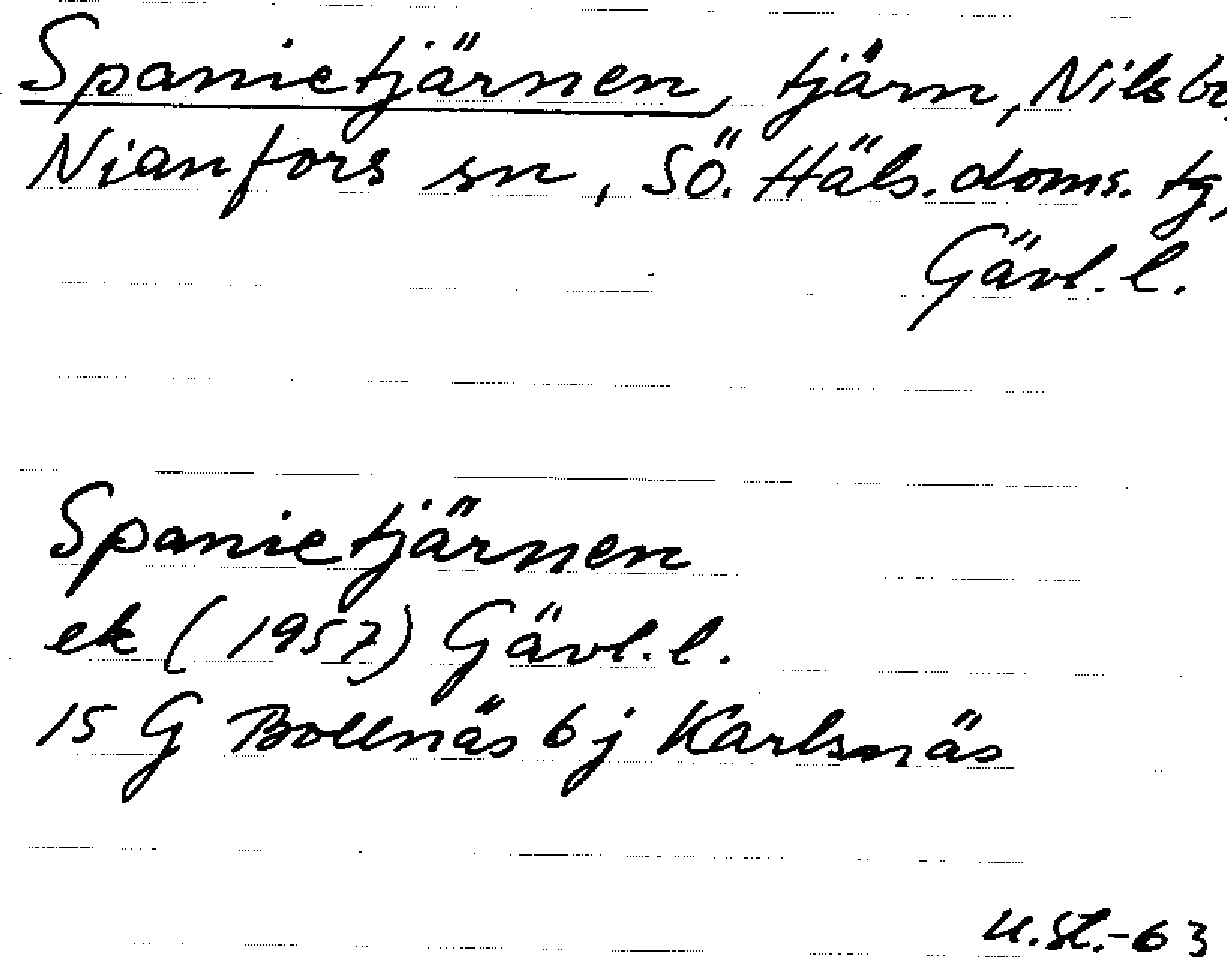 Spanietjärnen, tjärn, Nilsbo,
Nianfors sn, Sö. Häls. doms. tg,
Gävl. l.
Spanietjärnen
ek (1957) Gävl. l.
15 G Bollnäs 6 j Karlsnäs
U.St.-63